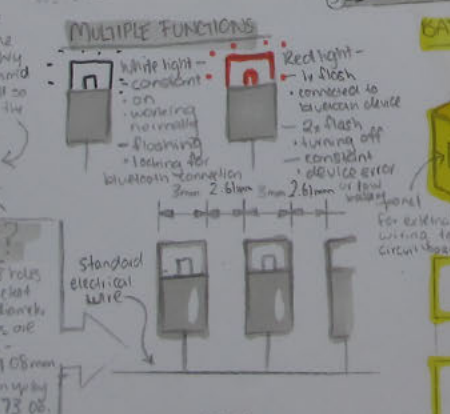 MULTIPLE FUNCTIONS
White light -
- constant
• on
• working
normally
- flashing
• looking for
bluetooth connection
Red light -
- 1x flash
• connected to
bluetooth device
- 2x flash
• turning off
- constant
• device error
or low
battery
3mm 2.61mm 3mm 2.61mm
standard
electrical
wire
panel
for external
wiring to
circuit board
BA
?
holes
the
are
1.08mm
73.08